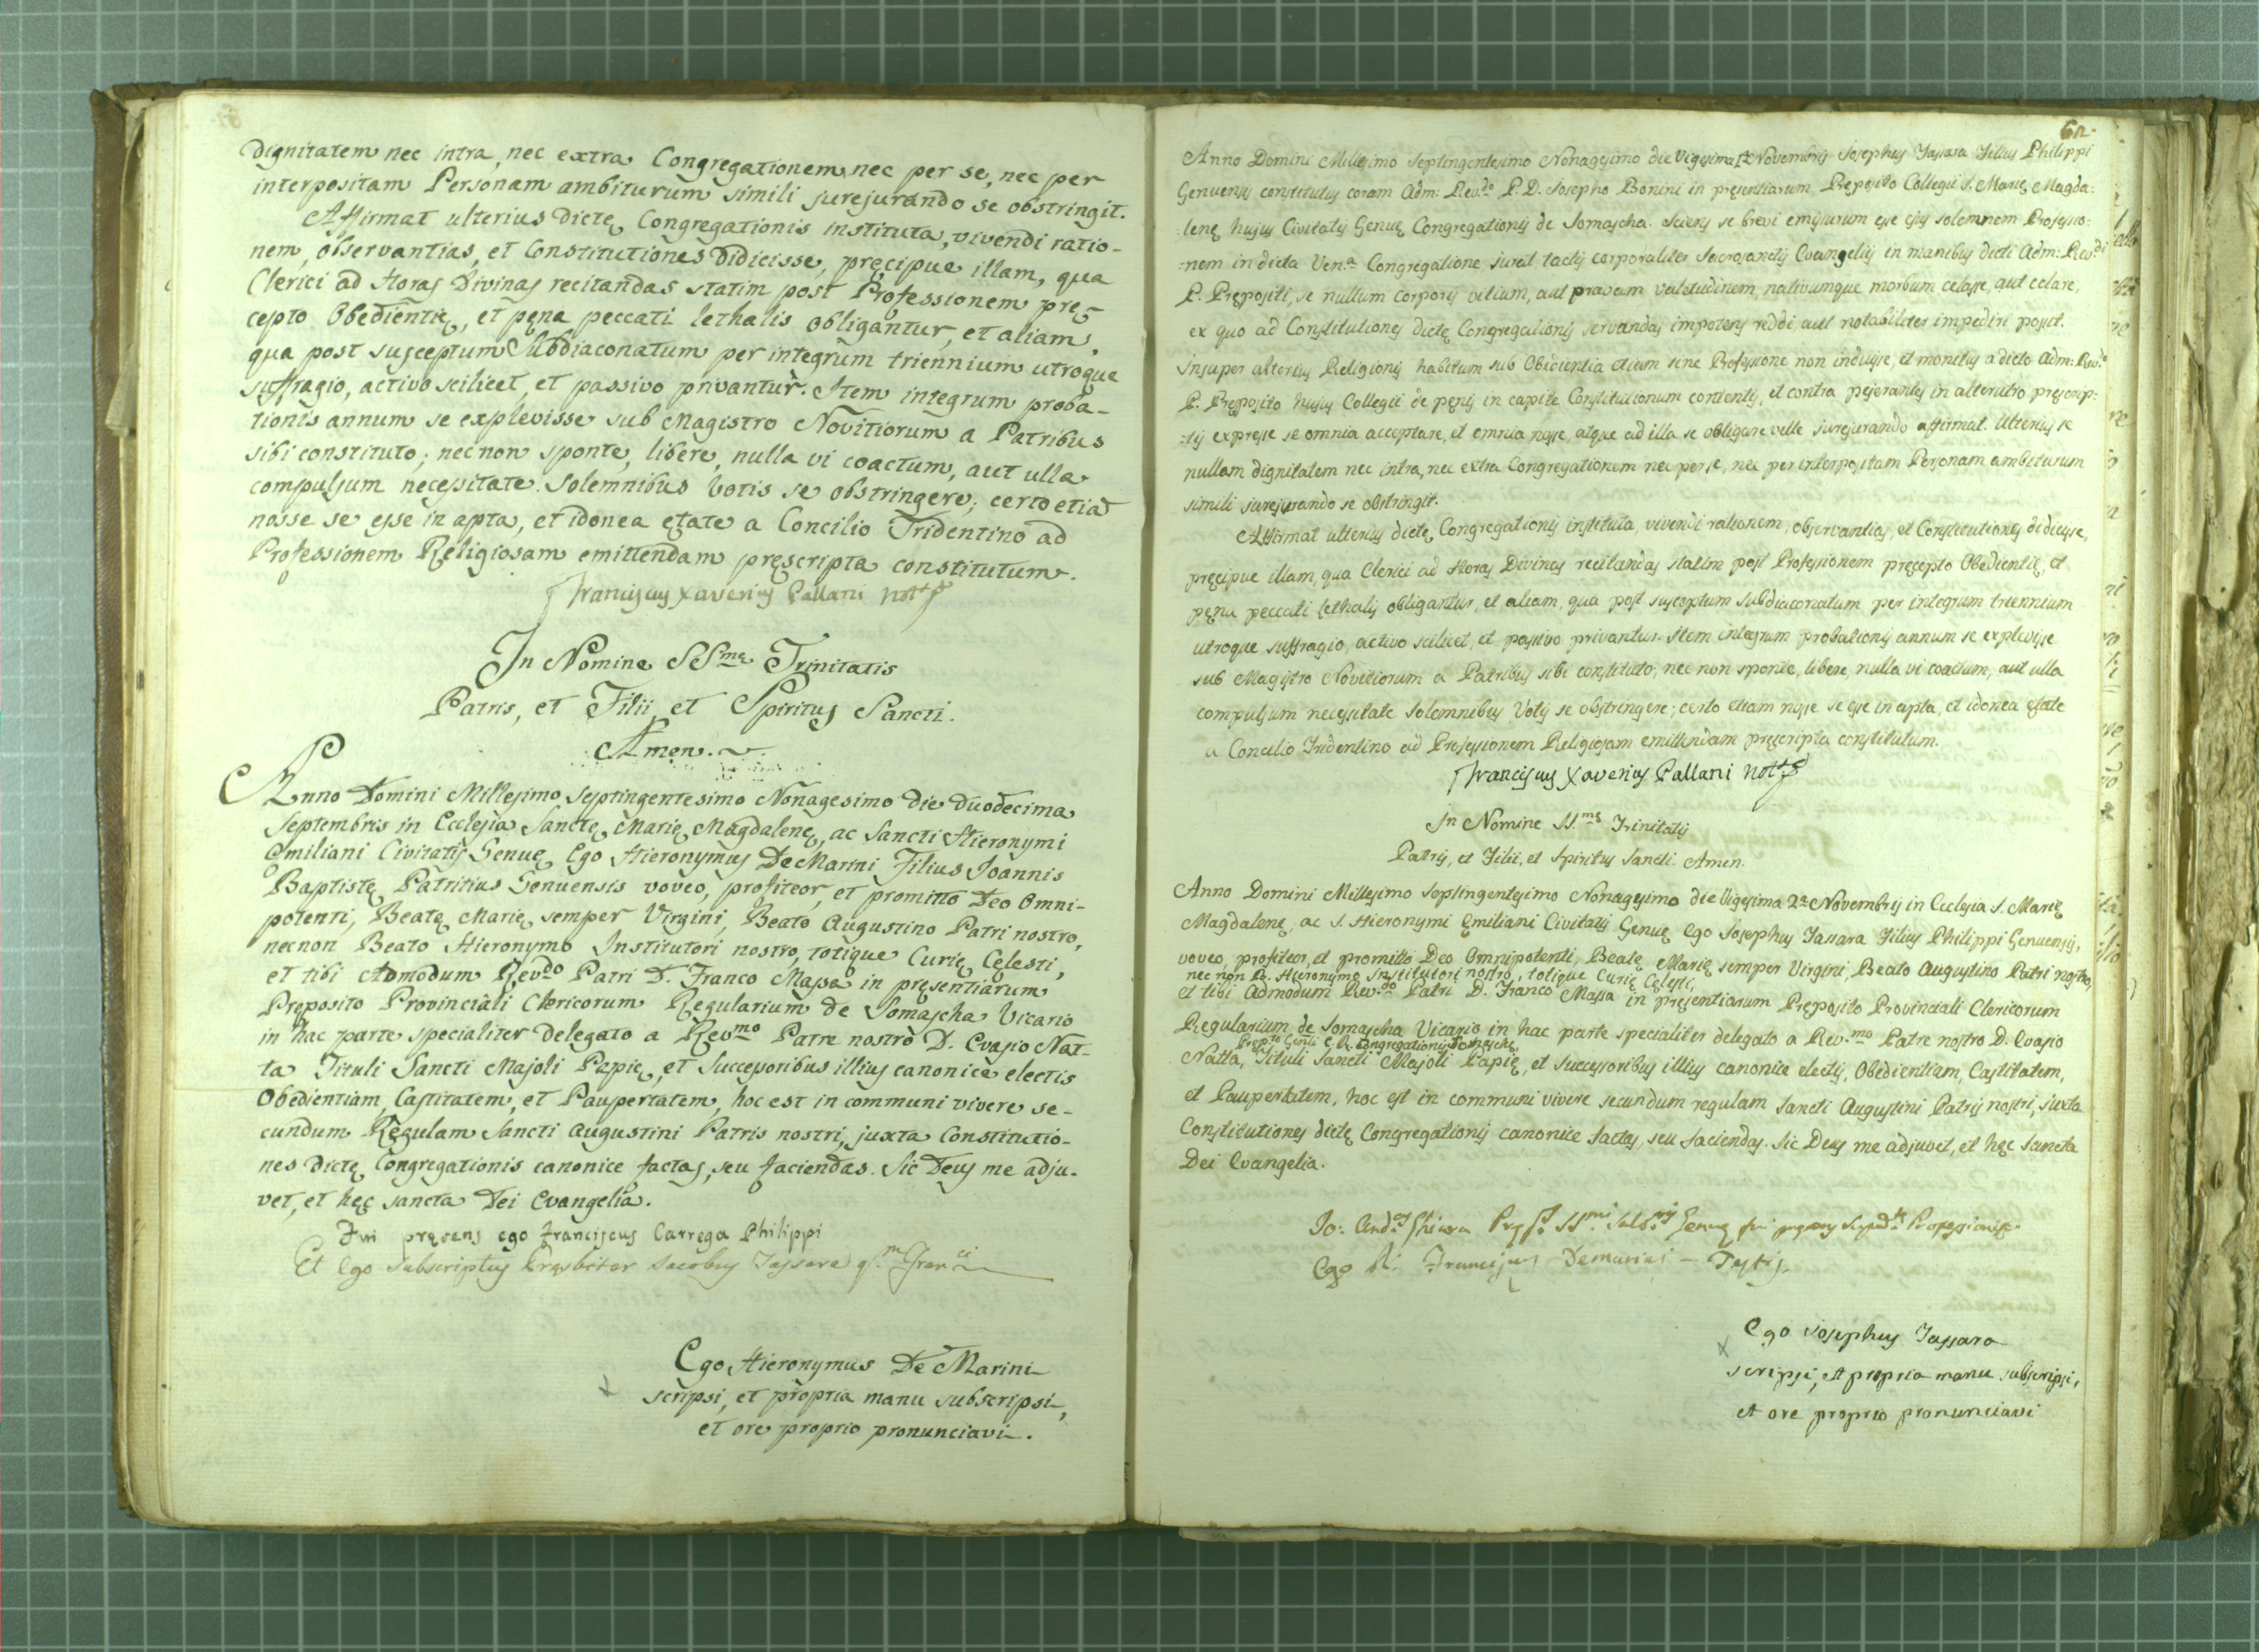 dignitatem nec intra, nec extra Congregationem nec per se, nec per
interpositam Personam ambiturum simili jurejurando se obstringit.
Affirmat ulterius dictę Congregationis instituta, vivendi ratio-
nem, observantias, et Constitutiones didicisse, pręcipue illam, qua
Clerici ad Horas Divinas recitandas statim post Professionem pręs
cepto Obedientię, et pęna peccati lethalis obligantur, et aliam,
qua post susceptum Subdiaconatum per integrum triennium utroque
suffragio, activo scilicet, et passivo privantur. Item integrum proba-
tionis annum se explevisse sub Magistro Novitiorum a Patribus
sibi constituto; nec non sponte, libere, nulla vi coactum, aut ulla
compulsum necessitate solemnibus Votis se obstringere; certo etiā
nosse se esse in apta, et idonea ętate a Concilio Tridentino ad
Professionem Religiosam emittendam pręscripta constitutum.
Franciscus Xaverius Pallani
In Nomine SS.mę Trinitatis
Patris, et Filii, et Spiritus Sancti.
Amen.
Anno Domini Millesimo Septingentesimo Nonagesimo die duodecima
Septembris in Ecclesia Sanctę Marię Magdalenę, ac Sancti Hieronymi
Emiliani Civitatis Genuę Ego Hieronymus De Marini Filius Joannis
Baptistę Patritius Genuensis voveo, profiteor, et promitto Deo Omni-
potenti, Beatę Marię semper Virgini, Beato Augustino Patri nostro,
necnon Beato Hieronymo Institutori nostro, totique Curię Cęlesti,
et tibi Admodum Rev.do Patri D. Franco Massa in pręsentiarum
Pręposito Provinciali Clericorum Regularium de Somascha Vicario
in hac parte specialiter delegato a Rev.mo Patre nostro D. Evasio Nat-
ta Tituli Sancti Majoli Papię, et Successoribus illius canonice electis
Obedientiam, Castitatem, et Paupertatem, hoc est in communi vivere se-
cundum Regulam Sancti Augustini Patris nostri, juxta Constitutio-
nes dictę Congregationis canonice factas, seu faciendas. Sic Deus me adju-
vet, et hęc sancta Dei Evangelia.
Fui pręsens ego Franciscus Carrega Philippi
Et Ego subscriptus Presbiter Jacobus Tassara q.m Fran.ci
Ego Hieronymus De Marini
scripsi, et propria manu subscripsi,
et ore proprio pronunciavi.
62.
Anno Domini Millesimo Septingentesimo Nonagesimo die Vigesima Novembris Josephus Tassara Filius Philippi
Genuensis constitutus coram Adm: Rev.do P. D. Josepho Bonini in pręsentiarum Pręposito Collegii S. Marię Magda:
:lenę hujus Civitatis Genuę Congregationis de Somascha. Sciens se brevi emissurum esse ejus solemnem Professio:
:nem in dicta Ven.a Congregatione, jurat tactis corporaliter Sacrosanctis Evangeliis in manibus dicti Adm: Rev.di
P. Prępositi, se nullum corporis vitium, aut pravam valetudinem, nativumque morbum celasse, aut celare,
ex quo ad Constitutiones dictę Congregationis servandas impotens reddi, aut notabiliter impediri possit.
Insuper alterius Religionis habitum sub Obedientia etiam sine Professione non induisse, et monitus a dicto Adm: Rev.do
P. Pręposito hujus Collegii de pęnis in capite Constitutionum contentis, et contra pejerantes in alterutro prescrip:
:tis expresse se omnia acceptare, et omnia nosse, atque ad illa se obligare velle jurejurando affirmat. Ulterius se
nullam dignitatem nec intra, nec extra Congregationem nec per se, nec per interpositam Personam ambiturum
simili jurejurando se obstringit.
Affirmat ulterius dictę Congregationis instituta, vivendi rationem, observantias, et Constitutiones didicisse,
pręcipue illam, qua Clerici ad Horas Divinas recitandas statim post Professionem pręcepto Obedientię, et
pęna peccati lethalis obligantur, et aliam, qua post susceptum subdiaconatum per integrum triennium
utroque suffragio, activo scilicet, et passivo privantur. Item integrum probationis annum se explevisse
sub Magistro Novitiorum a Patribus sibi constituto; nec non sponte, libere, nulla vi coactum, aut ulla
compulsum necessitate solemnibus Votis se obstringere; certo etiam nosse se esse in apta, et idonea ętate
a Concilio Tridentino ad Professionem Religiosam emittendam pręscripta constitutum.
Franciscus Xaverius Pallani
In Nomine SS.mę Trinitatis
Patris, et Filii, et Spiritus Sancti. Amen.
Anno Domini Millesimo Septingentesimo Nonagesimo die Vigesima 2a Novembris in Ecclesia S. Marię
Magdalenę, ac S. Hieronymi Emiliani Civitatis Genuę Ego Josephus Tassara Filius Philippi Genuensis,
voveo, profiteor, et promitto Deo Omnipotenti, Beatę Marię semper Virgini, Beato Augustino Patri nostro,
nec non B. Hieronymo Institutori nostro, totique Curię Cęlesti,
et tibi Admodum Rev.do Patri D. Franco Massa in pręsentiarum Pręposito Provinciali Clericorum
Regularium de Somascha Vicario in hac parte specialiter delegato a Rev.mo Patre nostro D. Evasio
Prep.to Genli C. R. Congregationis Somaschę
Natta, Tituli Sancti Majoli Papię, et successoribus illius canonice electis, Obedientiam, Castitatem,
et Paupertatem, hoc est in communi vivere secundum regulam Sancti Augustini Patris nostri, juxta
Constitutiones dictę Congregationis canonice factas, seu faciendas. Sic Deus me adjuvet, et hęc Sancta
Dei Evangelia.
Jo: And.s
Ego Franciscus Demarini - Testis.
Ego Josephus Tassara
scripsi, et propria manu subscripsi,
et ore proprio pronunciavi